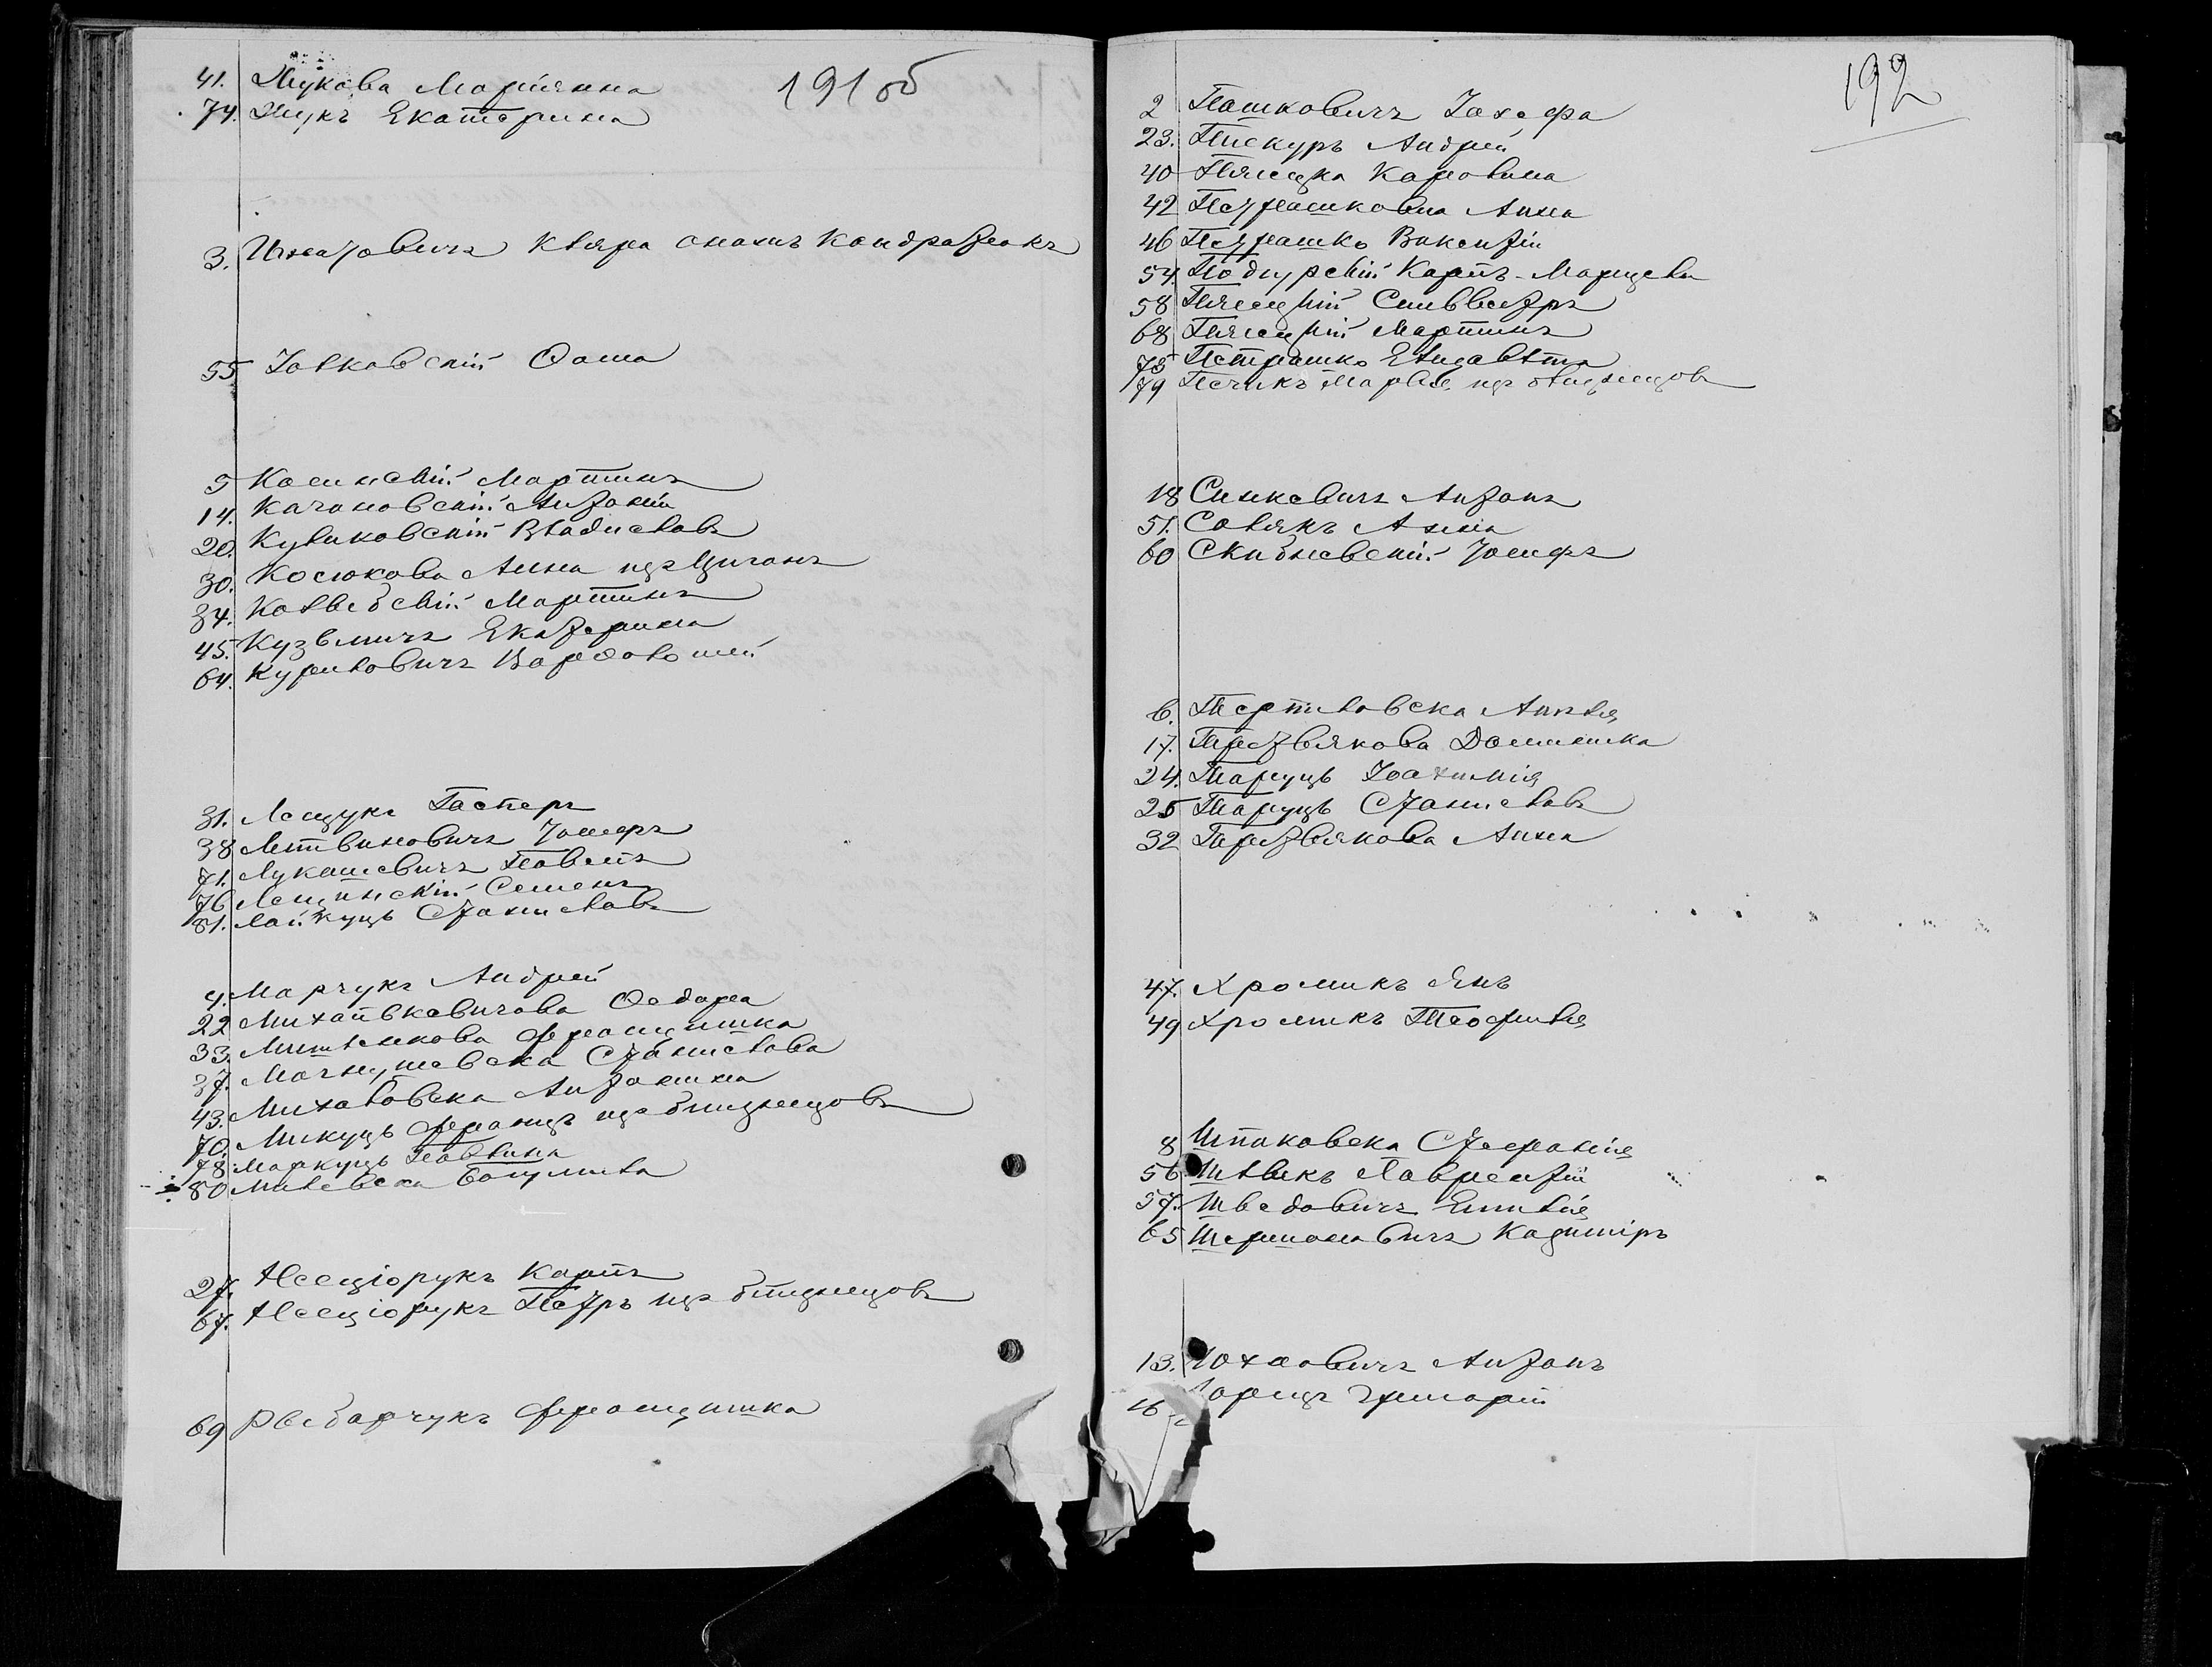 191 об
41. Жукова Марiянна
74. Жукъ Екатерина
3. Игнатовичъ Кляра она жъ Кондратюкъ
55 Іовковскій Ѳома
5 Косинскій Мартинъ
14. Качановскій Антоній
20. Куликовскій Владиславъ
30. Косюкова Анна изъ Цыганъ
34. Мартинъ
45. Кузьмичъ Екатерина
64. Куриловичъ Варѳоломей
31. Лещукъ Гасперъ
38 Литвиновичъ Іосифъ
71. Лукашевичъ Павелъ
76 Лещинскій Семенъ
81. Станиславъ
4. Марчукъ Андрей
22 Михалькевичова Ѳедора
33. Францишка
37. Станислава
43. Михаловска Антонина
70. Микуцъ Францъ изъ близнецовъ
78. Маркуцъ Павлина
80 Милевска Богумила
27. Несцiорукъ Карлъ
67. Несцiорукъ Петръ изъ близнецовъ
69 Францишка
192
2 Пашковичъ Іозефа
23. Пискуръ Андрей
40 Пясецка Каролина
42 Петрашковна Анна
46 Петрашко Викентій
54. Карлъ-Марцели
58 Пясецкій Сильвестръ
68 Пясецкій Мартинъ
75 Петрашко Елизавѣта
79 Печикъ Марiя изъ близнецовъ
18 Синкевичъ Антонъ
51. Солякъ Анна
60 Скибневскій Іосифъ
6. Тертиловска Анѣля
17. Третьякова Доминика
24. Таруць Іоахимiя
25 Таруць Станиславъ
32 Третьякова Анна
47. Хромикъ Янъ
49 Хромикъ Теофиля
8 Шпаковска Стефанія
56 Лаврентій
57. Шведовичъ Емилія
65 Шермановичъ Казимiръ
13. Юхновичъ Антонъ
16